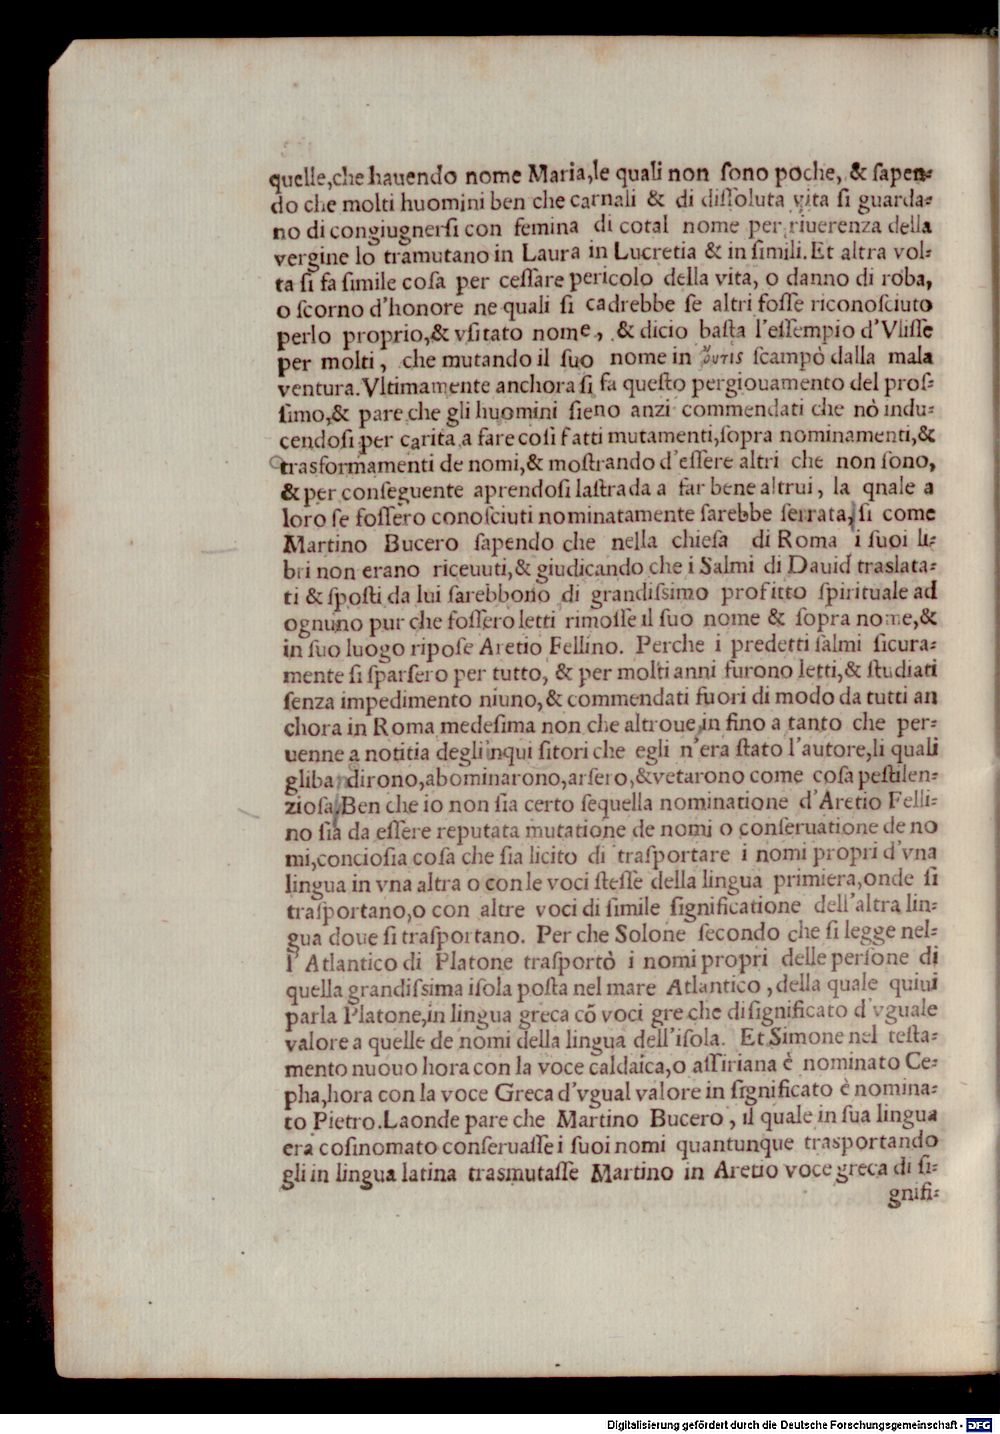 quelle,che hauendo nome Maria,le quali non ſono poche, & ſapen⸗
do che molti huomini ben che carnali & di diſſoluta vita ſi guarda⸗
no di congiugnerſi con femina di cotal nome per riuerenza della
vergine lo tramutano in Laura in Lucretia & in ſimili. Et altra vol⸗
ta ſi fa ſimile coſa per ceſſare pericolo della vita, o danno di roba,
o ſcorno d'honore ne quali ſi cadrebbe ſe altri foſſe riconoſciuto
perlo proprio,& vſitato nome, & dicio baſta l'eſſempio d'Vliſſe
per molti, che mutando il ſuo nome in ὄυτις ſcampò dalla mala
ventura. Vltimamente anchora ſi fa queſto pergiouamento del proſ⸗
ſimo,& pare che gli huomini ſieno anzi commendati che nò indu⸗
cendoſi per carita a fare coſi fatti mutamenti,ſopra nominamenti,&
trasformamenti de nomi,& moſtrando d'eſſere altri che non ſono,
& per conſeguente aprendoſi laſtrada a far bene altrui, la qnale a
loro ſe foſſero conoſciuti nominatamente ſarebbe ſerrata, ſi come
Martino Bucero ſapendo che nella chieſa di Roma i ſuoi li⸗
bri non erano riceuuti,& giudicando che i Salmi di Dauid traslata⸗
ti & ſpoſti da lui ſarebbono di grandiſsimo profitto ſpirituale ad
ognuno pur che foſſero letti rimoſſe il ſuo nome & ſopra nome,&
in ſuo luogo ripoſe Aretio Fellino. Perche i predetti ſalmi ſicura⸗
mente ſi ſparſero per tutto, & per molti anni furono letti,& ſtudiati
ſenza impedimento niuno,& commendati fuori di modo da tutti an
chora in Roma medeſima non che altroue,in fino a tanto che per⸗
uenne a notitia degli inqui ſitori che egli n'era ſtato l'autore,li quali
gliba ndirono,abominarono,arſero,& vetarono come coſa peſtilen⸗
zioſa. Ben che io non ſia certo ſequella nominatione d'Aretio Felli⸗
no ſia da eſſere reputata mutatione de nomi o conſeruatione de no
mi,concioſia coſa che ſia licito di traſportare i nomi propri d'vna
lingua in vna altra o con le voci ſteſſe della lingua primiera,onde ſi
traſportano,o con altre voci di ſimile ſignificatione dell'altra lin⸗
gua doue ſi traſportano. Per che Solone ſecondo che ſi legge nel⸗
l' Atlantico di Platone traſportò i nomi propri delle perſone di
quella grandiſsima iſola poſta nel mare Atlantico, della quale quiui
parla Platone,in lingua greca cō voci gre che di ſignificato d'vguale
valore a quelle de nomi della lingua dell'iſola. Et Simone nel teſta⸗
mento nuouo hora con la voce caldaica,o aſſiriana è nominato Ce⸗
pha,hora con la voce Greca d'vgual valore in ſignificato è nomina⸗
to Pietro. Laonde pare che Martino Bucero, il quale in ſua lingua
era coſinomato conſeruaſſe i ſuoi nomi quantunque trasportando
gli in lingua latina trasmutaſſe Martino in Aretio voce greca di ſi⸗
gnifi⸗
Digitalisierung gefördert durch die Deutsche Forschungsgemeinschaft - DFG